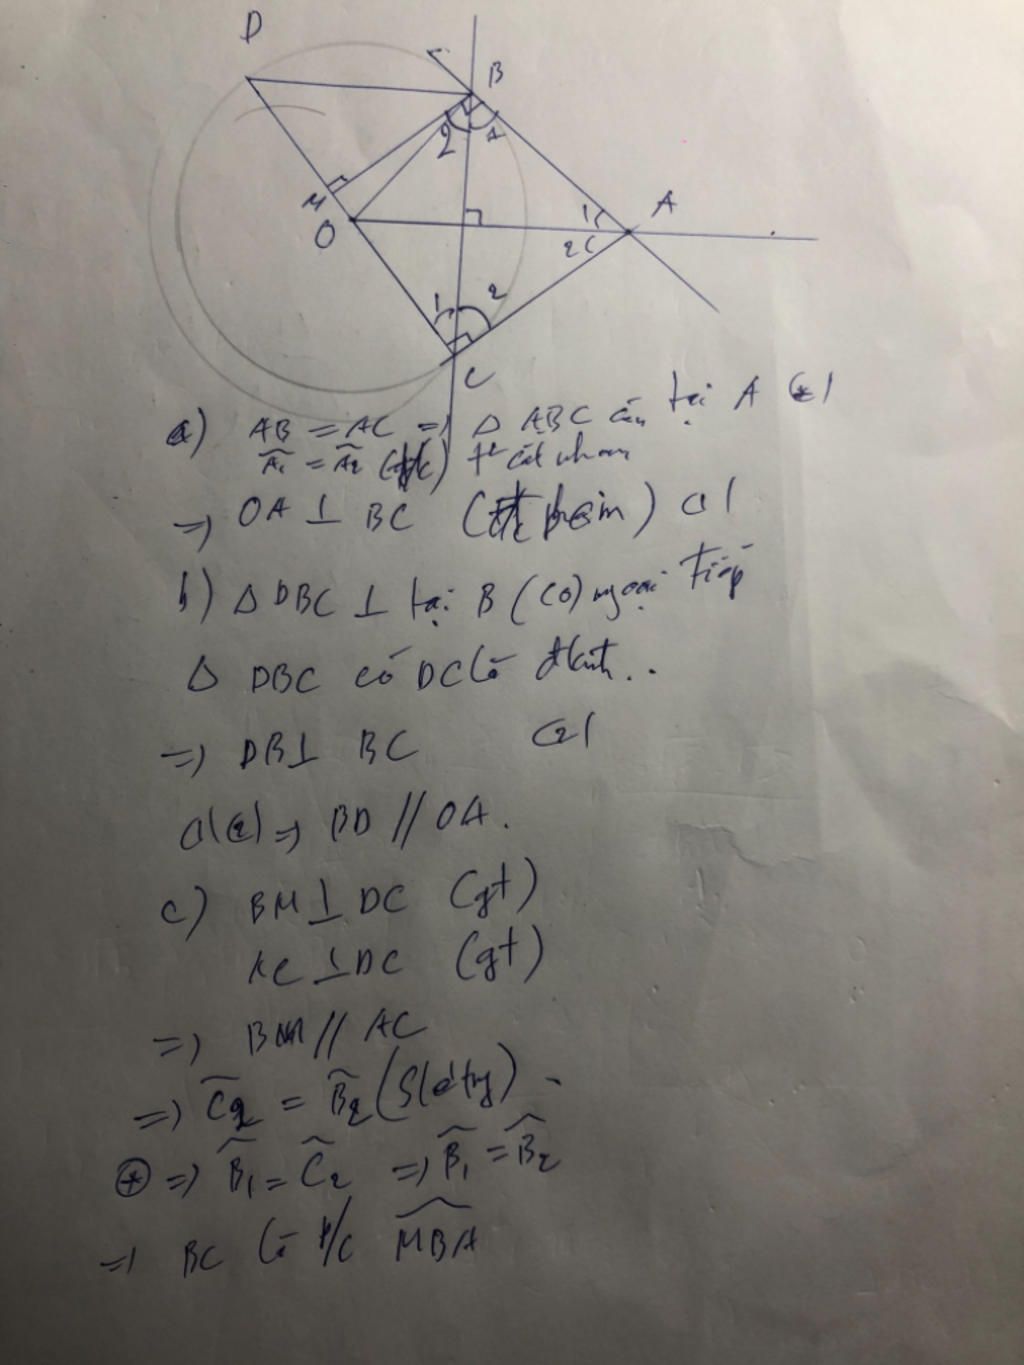 D
B
2
1
M
O
1
A
2
1
2
C
a) AB = AC => Δ ABC cân tại A (*)
Â₁ = Â₂ t² cắt nhau
=> OA ⊥ BC (1)
b) Δ DBC ⊥ tại B (O) ngoại tiếp
Δ DBC có DC là đkính..
=> DB ⊥ BC (2)
(1)(2) => BD // OA.
c) BM ⊥ DC (gt)
KC ⊥ DC (gt)
=> BM // AC
=> Ĉ₂ = B̂₂ (Sletrg)
(*) => B̂₁ = Ĉ₂ => B̂₁ = B̂₂
=> BC là p/c MBA